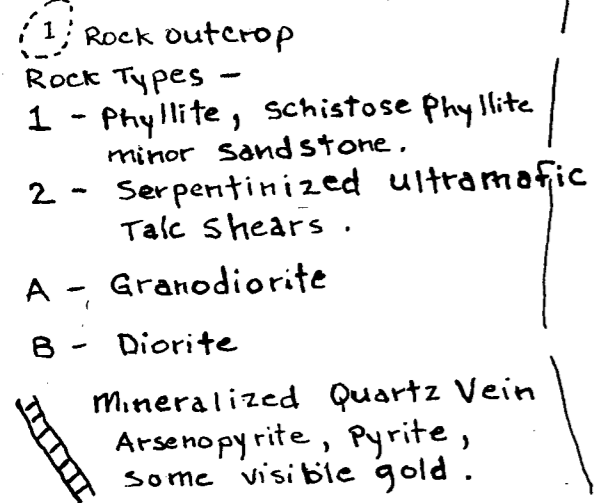 1 Rock outcrop
Rock Types -
1 - Phyllite, schistose Phyllite
minor sandstone.
2 - Serpentinized ultramafic
Talc Shears.
A - Granodiorite
B - Diorite
Mineralized Quartz Vein
Arsenopyrite, Pyrite,
some visible gold.